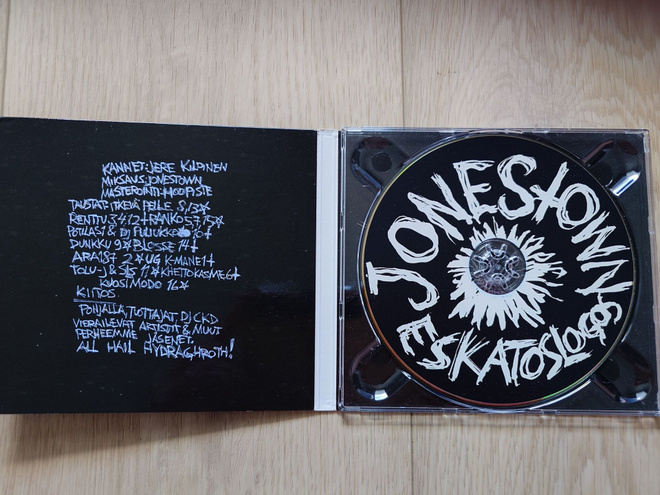 KANNET: JERE KILPINEN
MIKSAUS: JONESTOWN
MASTEROINTI: HOOPISTE
TAUSTAT: ITKEVÄ PELLE 8,13
RENTTU 3 4 12 RÄNKÖ 5 7 15
POTILAS1 & DJ PULIUKKO 10
DUNKKU 9 BLOSSE 14
ARA187 2 UG K-MANE 1
TOLU-J & SLS 11 KHETTOKASME 6
KUOSIMODO 16
KIITOS:
POHJALLA, TUOTTAJAT, DJ CKD
VIERAILEVAT ARTISTIT & MUUT
PERHEEMME JÄSENET.
ALL HAIL HYDRAGHROTH!
JONESTOWN
ESKATOSLOGOS